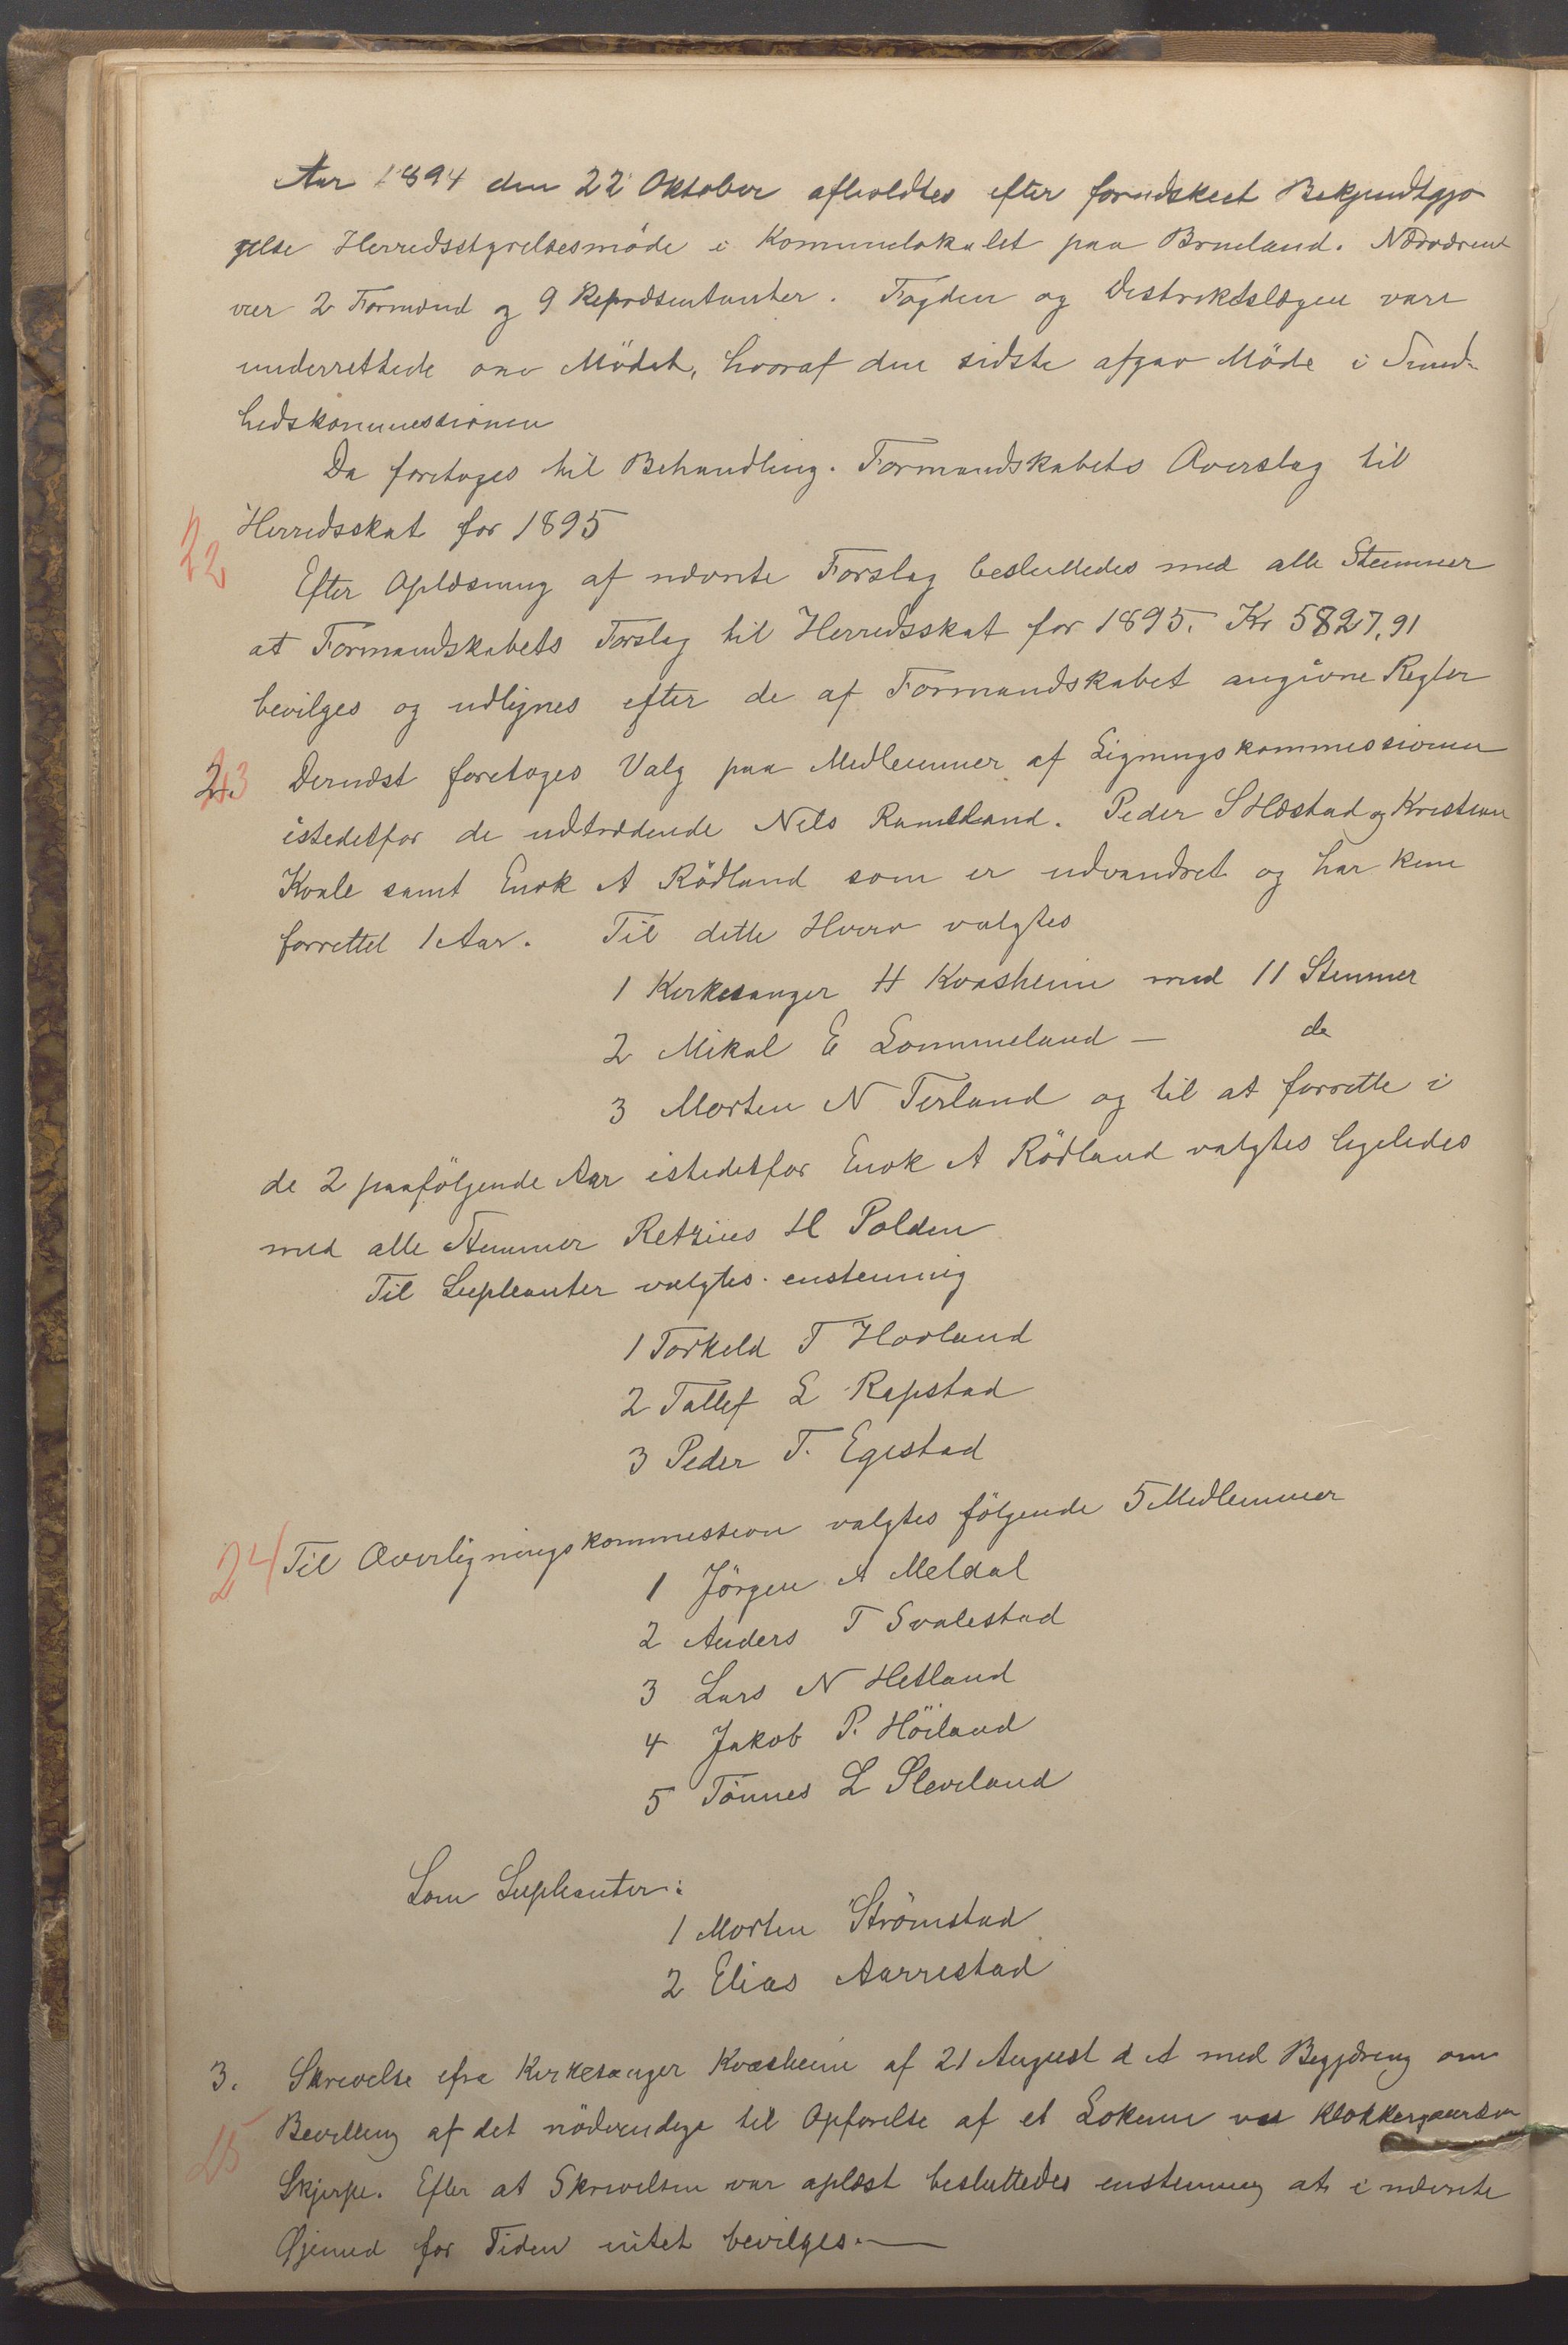 Aar 1894 den 22 Oktober afholdtes efter forudskeet Bekjendtgjø
relse Herredsstyrelsesmöde i Kommunelokalet paa Brueland. Nærværent
var 2 Formænd og 9 Repræsentanter. Fogden og Distriktslægen vare
underrettede om Mödet, hvoraf den sidste afgav Möde i Sund-
hedskommissionen
Da foretoges til Behandling. Formandskabets Overslag til
22 Herredsskat for 1895
Efter Oplæsning af nævnte Forslag besluttedes med alle Stemmer
at Formandskabets Forslag til Herredsskat for 1895. Kr 5827,91
bevilges og udlignes efter de af Formandskabet angivne Regler
2. 23 Dernæst foretoges Valg paa Medlemmer af Ligningskommissionen
istedetfor de udtrædende Nils Ramsland. Peder S Hæstad og Kristian
Kvale samt Enok A Rödland som er udvandret og har kun
forrettet 1 Aar. Til dette Hverv valgtes
1 Kirkesanger H Kvasheim med 11 Stemmer
2 Mikal E Lommeland — do
3 Morten N Terland og til at forrette i
de 2 paafölgende Aar istedetfor Enok A Rödland valgtes ligeledes
med alle Stemmer Retzius H Polden
Til Supleanter valgtes enstemmig
1 Torkeld T Hovland
2 Tallef L Rapstad
3 Peder T. Egestad
24 Til Overligningskommission valgtes fölgende 5 Medlemmer
1 Jörgen A Meldal
2 Anders T Svalestad
3 Lars N Hetland
4 Jakob P. Höiland
5 Tönnes L Sleveland
Som Supleanter:
1 Morten Strömstad
2 Elias Aarrestad
3. Skrivelse ifra Kirkesanger Kvasheim af 21 August d A med Begjæring om
25 Bevilling af det nödvendige til Opförelse af et Lokum ved Klokkergaarden
Skjerpe. Efter at Skrivelsen var oplæst besluttedes enstemmig at i nævnte
Øjemed for Tiden intet bevilges.—